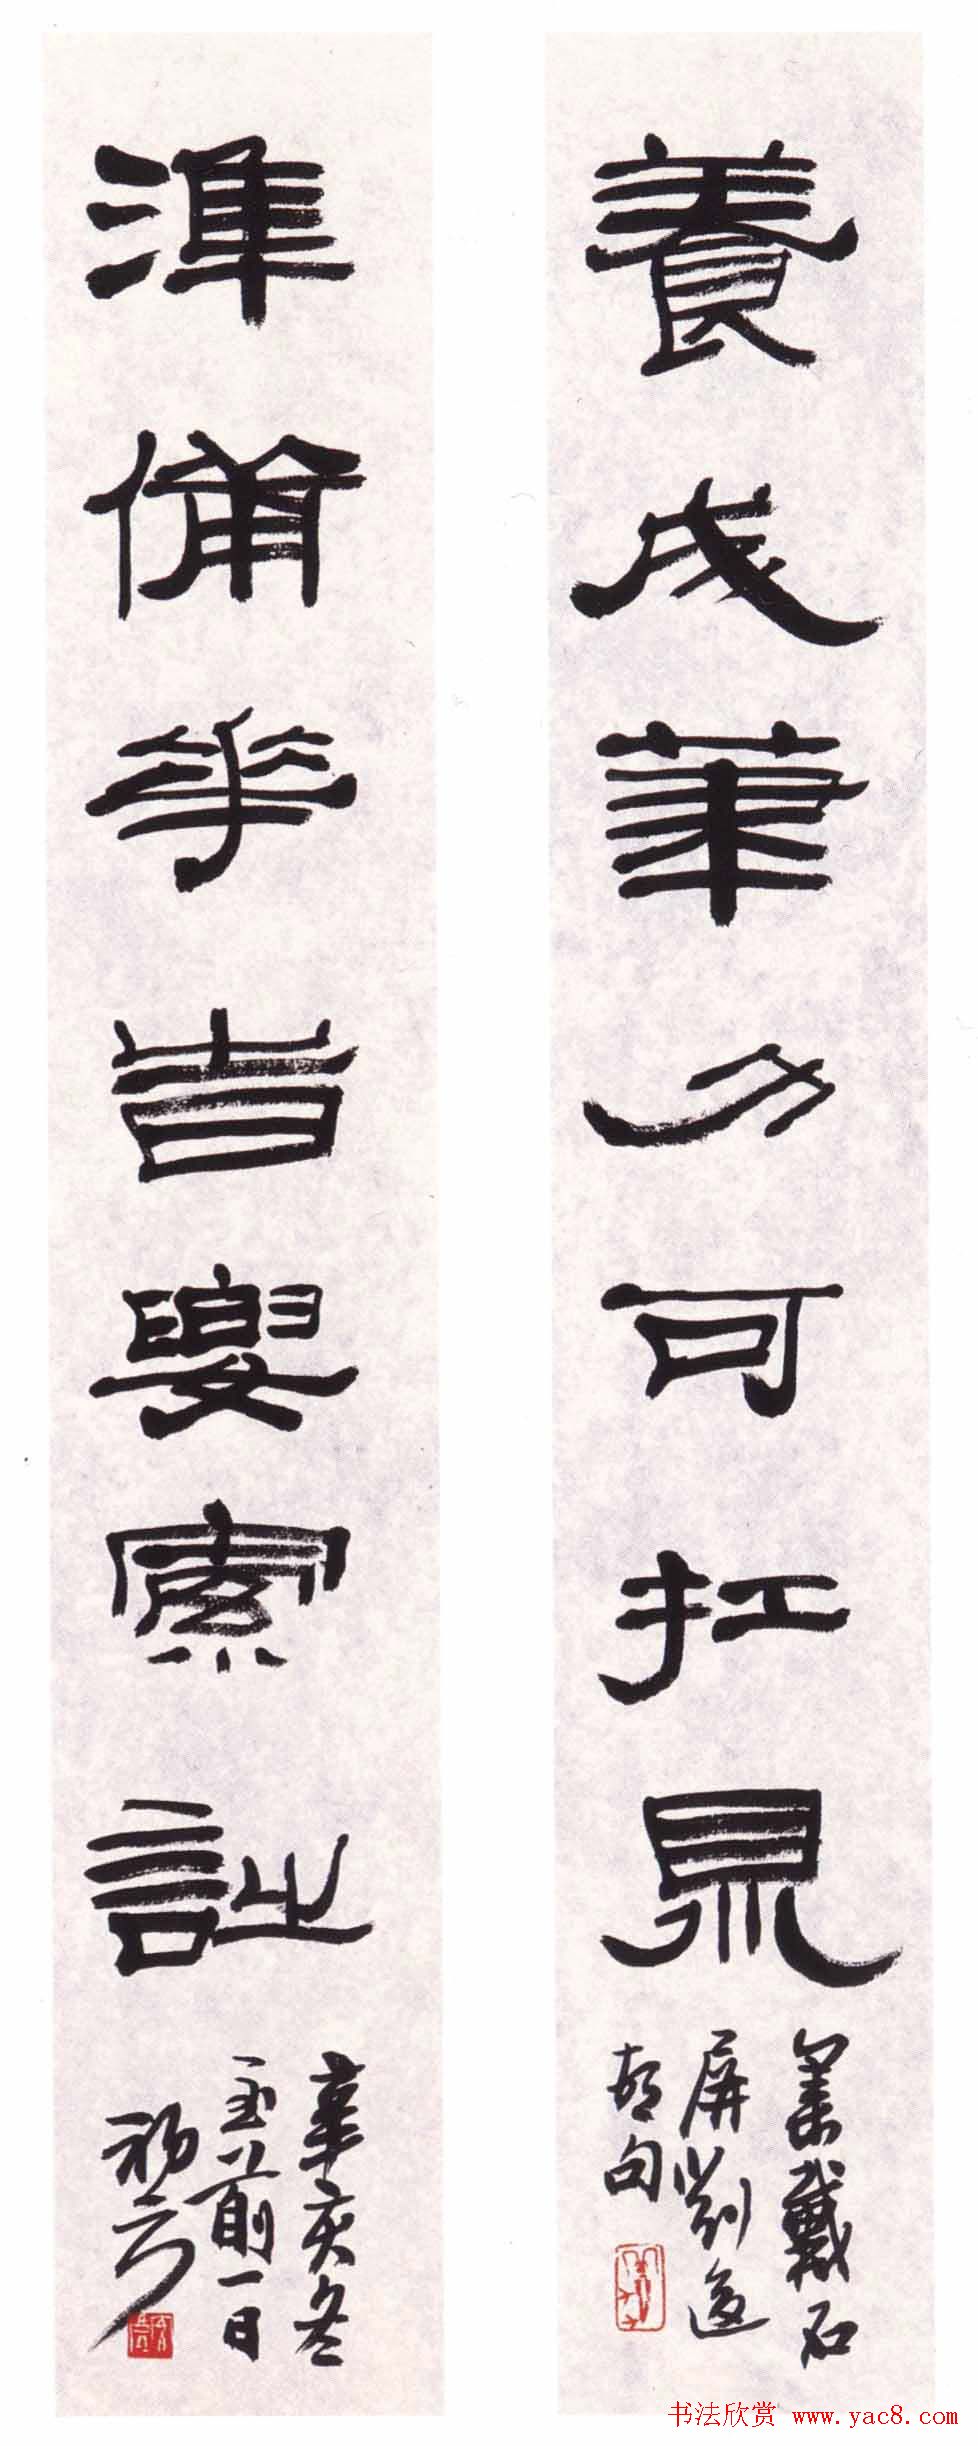 養成筆力可扛鼎
集戴石
屏劉後
邨句
準備華旹要索詩
辛亥冬
至前一日
书法欣赏 www.yac8.com